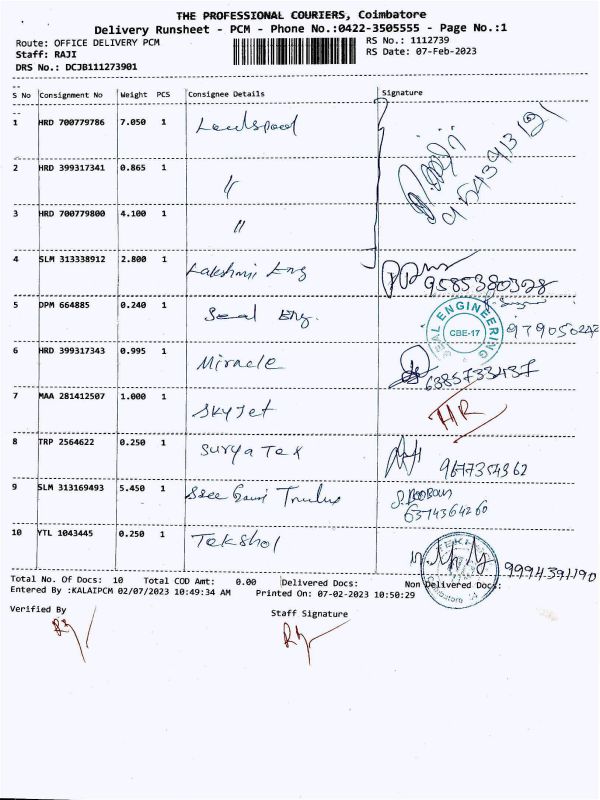 THE PROFESSIONAL COURIERS, Coimbatore
Delivery Runsheet - PCM - Phone No.:0422-3505555 - Page No.:1
Route: OFFICE DELIVERY PCM
Staff: RAJI
DRS No.: DCJB111273901
RS No.: 1112739
RS Date: 07-Feb-2023
S No Consignment No Weight PCS Consignee Details Signature
1 HRD 700779786 7.050 1
2 HRD 399317341 0.865 1 〃
3 HRD 700779800 4.100 1 〃
4 SLM 313338912 2.800 1 Lakshmi Eng 9585380328
5 DPM 664885 0.240 1 Seal Eng.
SEAL ENGINEERING
CBE-17
6 HRD 399317343 0.995 1 Miracle 6385733437
7 MAA 281412507 1.000 1 SkyJet HR
8 TRP 2564622 0.250 1 Surya Tex 9677354362
9 SLM 313169493 5.450 1 Sree 6374364260
10 YTL 1043445 0.250 1 Tekshol 9994391190
Total No. Of Docs: 10 Total COD Amt: 0.00 Delivered Docs: Non Delivered Docs:
Entered By :KALAIPCM 02/07/2023 10:49:34 AM Printed On: 07-02-2023 10:50:29
Verified By
Staff Signature